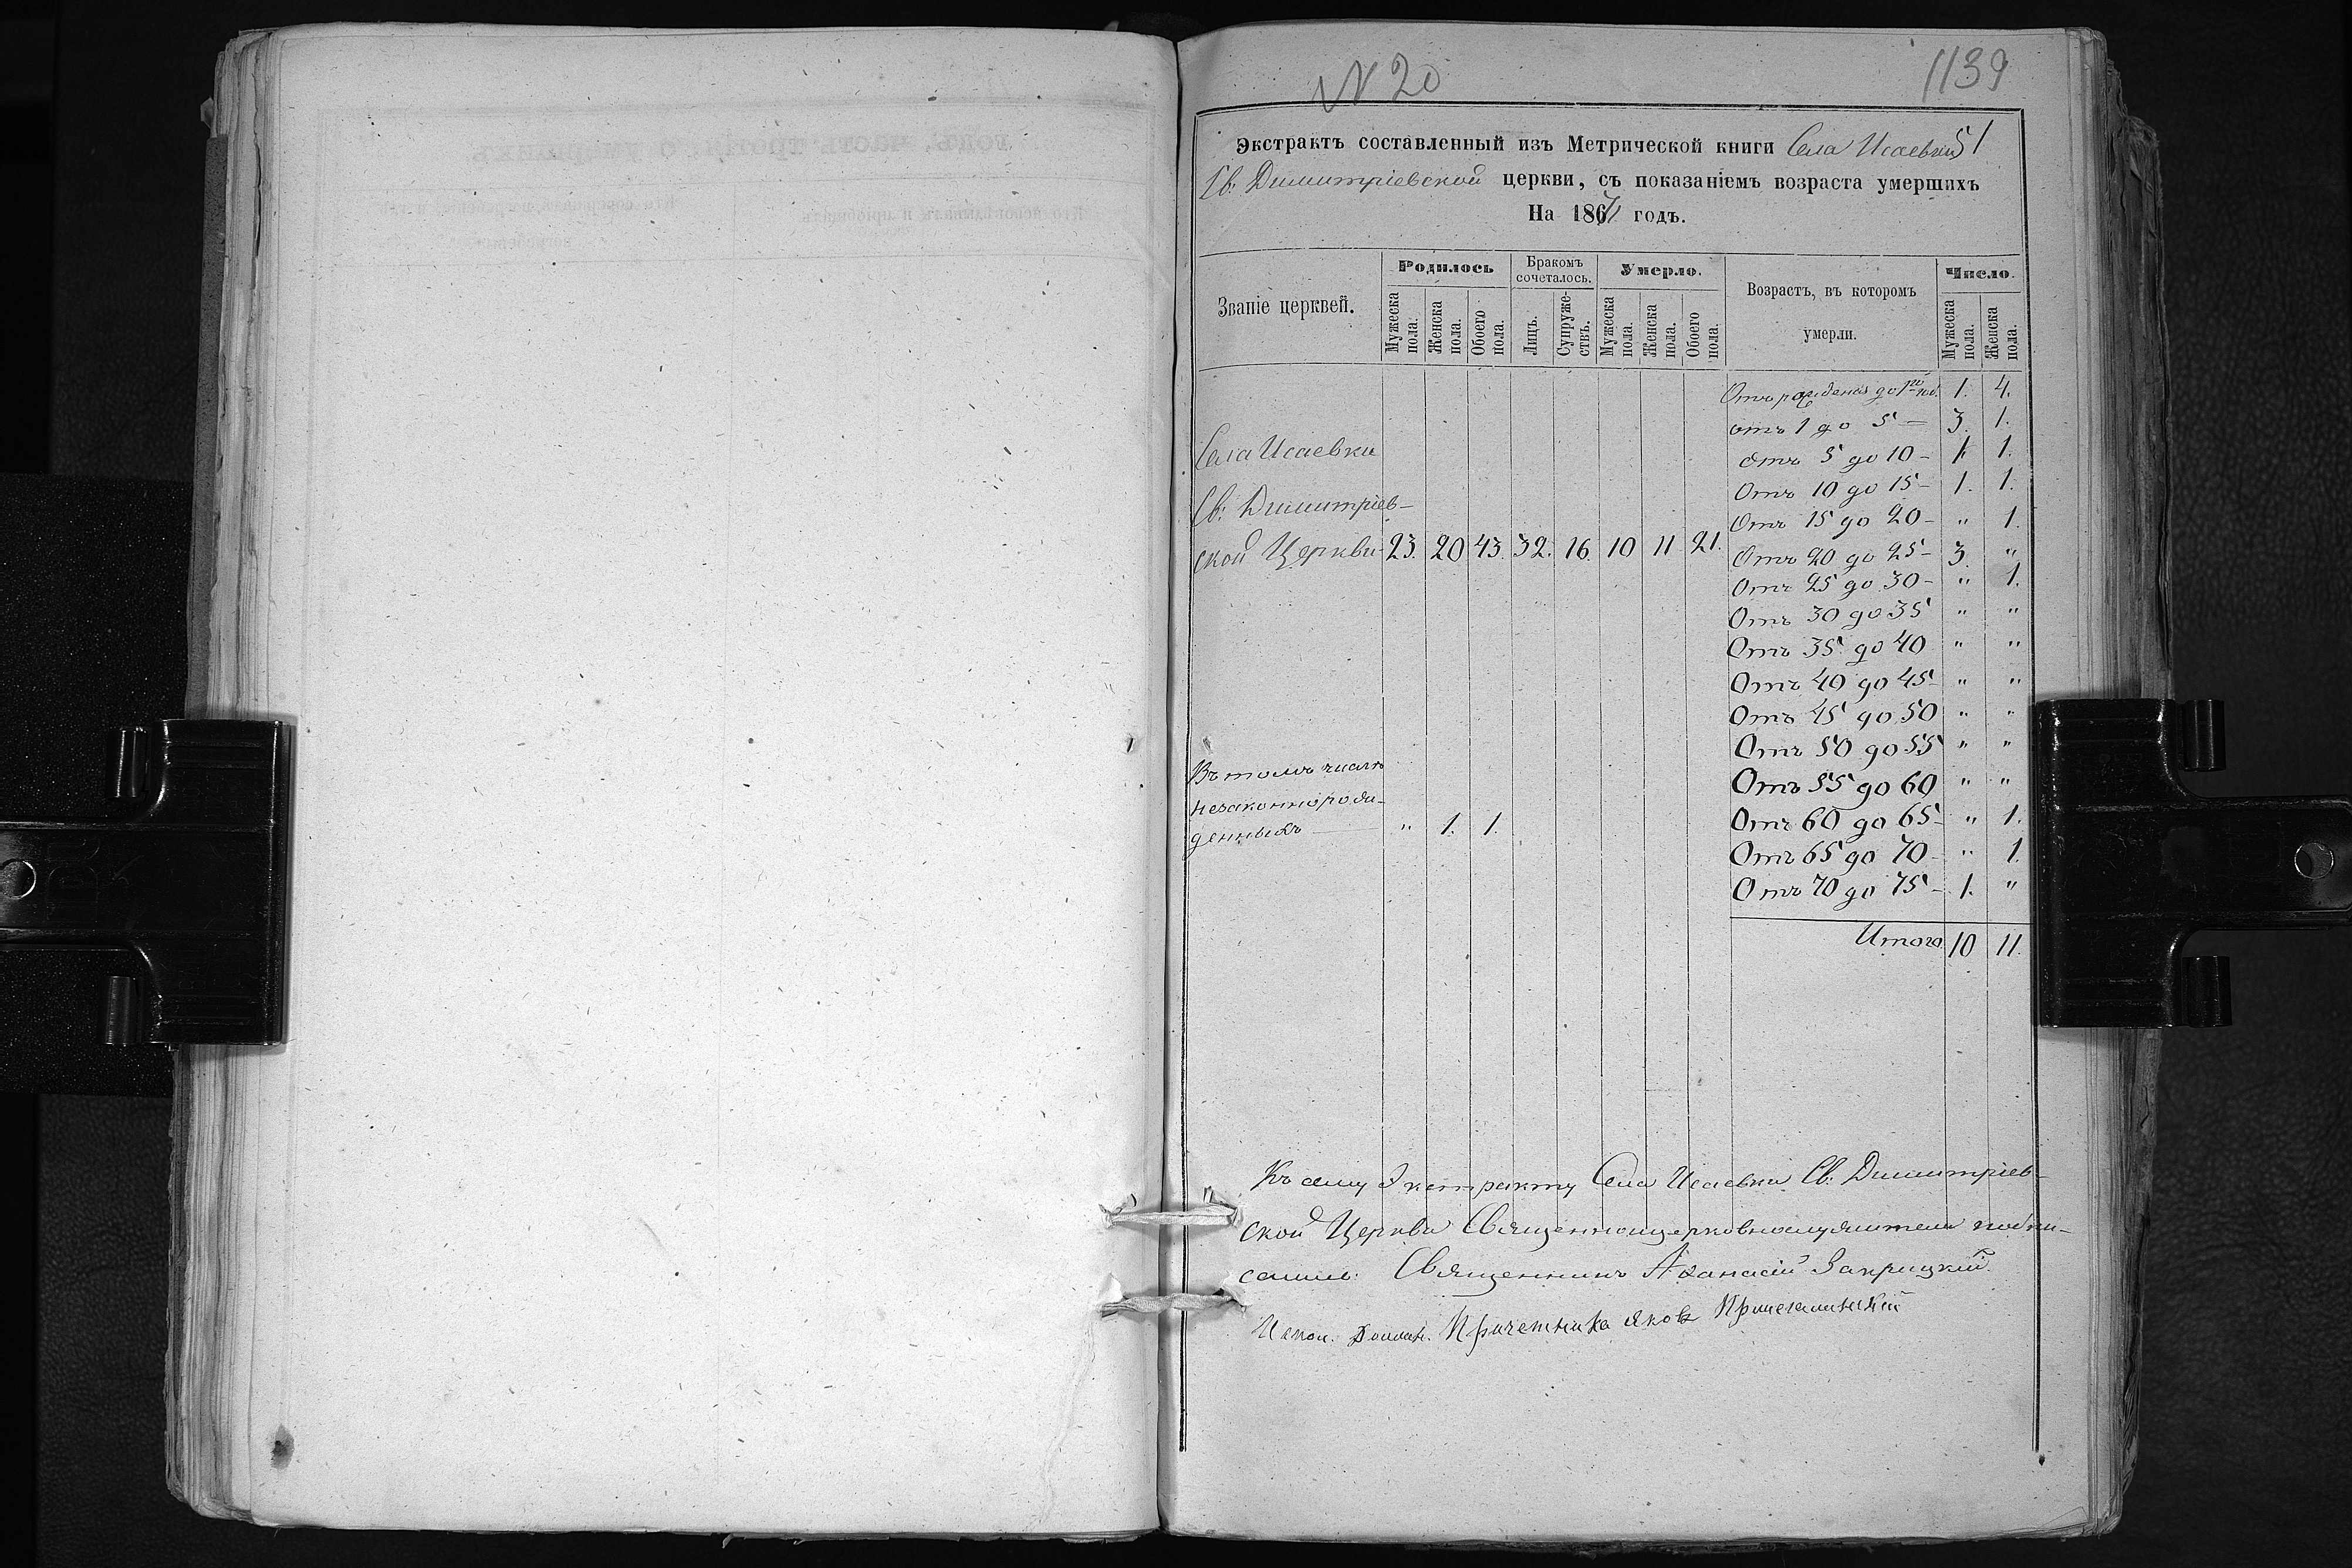 N 20
1139
51
Экстрактъ составленный изъ Метрической книги Села Исаевки
Св: Димитріевской церкви, съ показаніемъ возраста умершихъ
На 1871 годъ.
Званіе церквей. Родилось Бракомъ сочеталось. Умерло. Возрастъ, въ которомъ умерли. Число.
Мужеска пола. Женска пола. Обоего пола. Лицъ. Супружествъ. Мужеска пола. Женска пола. Обоего пола. Мужеска пола. Женска пола.
Отъ рожденія до 1го год. 1. 4.
отъ 1 до 5 — 3. 1.
Села Исаевки
отъ 5 до 10 - 1. 1.
Отъ 10 до 15 - 1. 1.
Св: Димитріев-
Отъ 15 до 20 - " 1.
ской Церкви 23. 20 43. 32. 16. 10 11 21.
Отъ 20 до 25 - 3. "
Отъ 25 до 30 - " 1.
Отъ 30 до 35 " "
Отъ 35 до 40 " "
Отъ 40 до 45 - " "
Отъ 45 до 50 " "
Отъ 50 до 55 " "
Въ томъ числѣ
Отъ 55 до 60 " "
незаконнорож-
денныхъ — " 1. 1.
Отъ 60 до 65 - " 1.
Отъ 65 до 70 - " 1.
Отъ 70 до 75 - 1. "
Итого 10 11.
Къ сему Экстракту Села Исаевки Св: Димитріев-
ской Церкви Священноцерковнослужители подпи-
сались: Священникъ Аѳанасій Закрицкій.
Испол. Должн. Причетника Яковъ